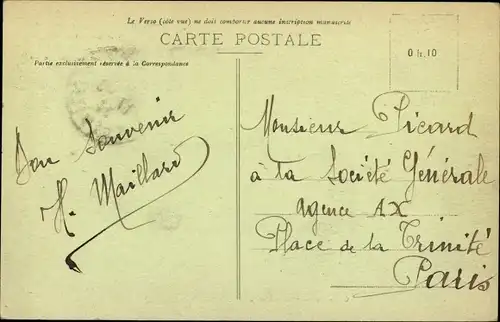 Le Verso (côté vue) ne doit comporter aucune inscription manuscrite
CARTE POSTALE
Partie exclusivement réservée à la Correspondance
04.10
Bon Souvenir
H. Maillard
Monsieur Picard
à la Société Générale
Agence AX
Place de la Trinité
Paris